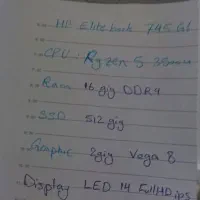 HP Elite book 745 G6
CPU: Ryzen 5 3500u
Ram 16 gig DDR4
SSD 512 gig
Graphic 2gig Vega 8
Display LED 14 Full HD ips